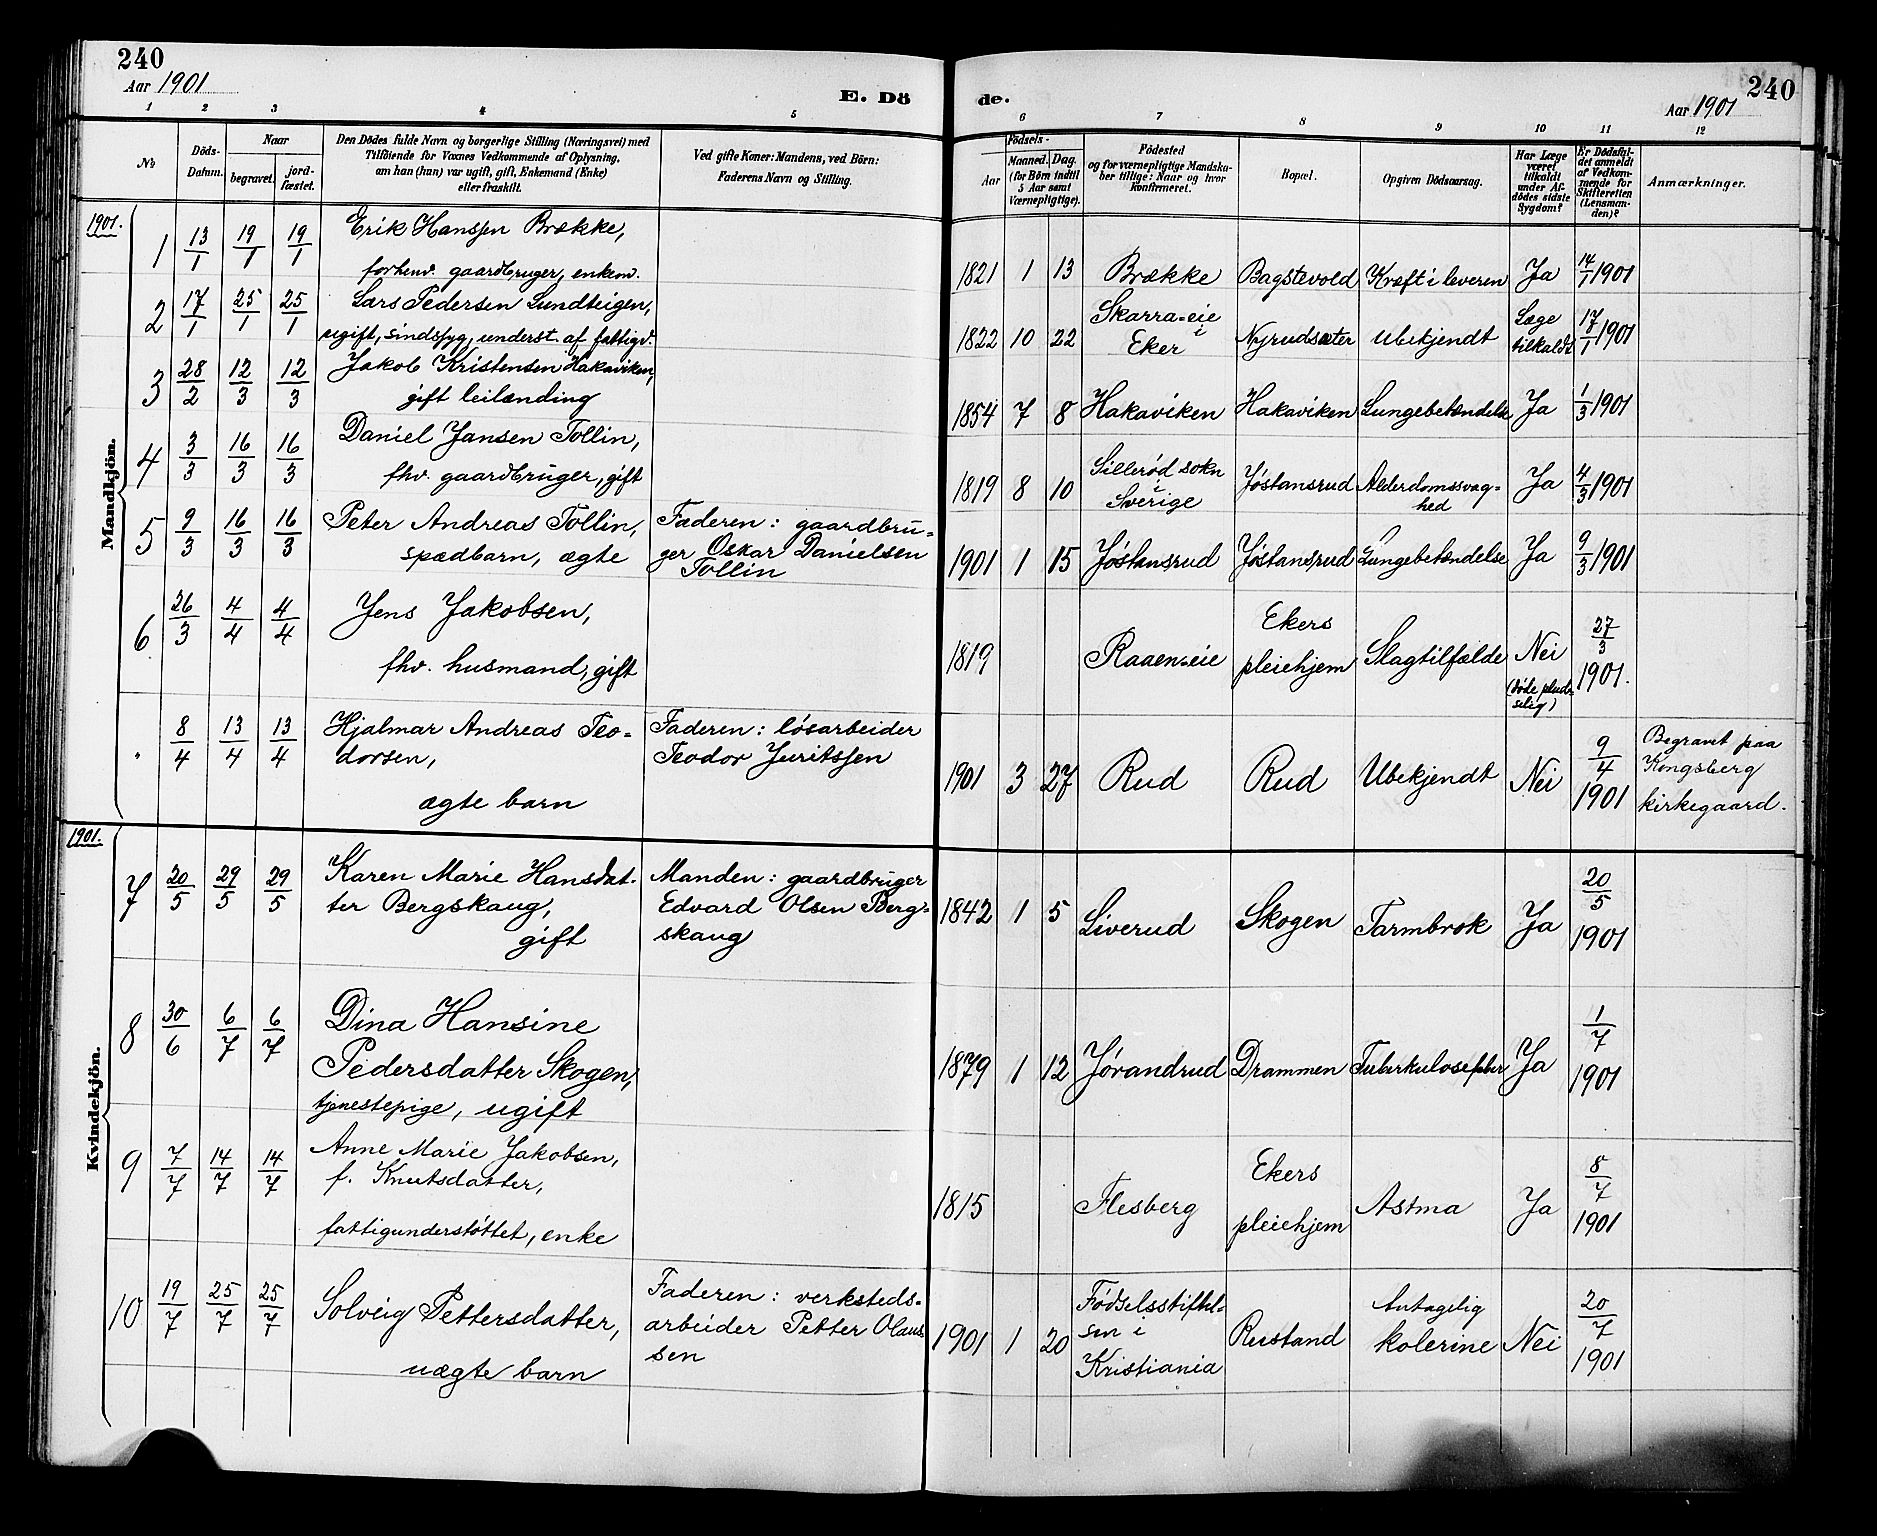 240
Aar 1901
E. Dö
de.
240
Aar 1901
1 2 3 4 5 6 7 8 9 10 11 12
No
Döds-
Datum.
Naar
begravet.
jord-
fæstet.
Den Dödes fulde Navn og borgerlige Stilling (Næringsvei) med
Tilföiende for Voxnes Vedkommende af Oplysning,
om han (hun) var ugift, gift, Enkemand (Enke)
eller fraskilt.
Ved gifte Koner: Mandens, ved Börn:
Faderens Navn og Stilling.
Födsels-
Aar
Maaned. Dag.
(for Börn indtil
5 Aar samt
Værnepligtige).
Födested
og for værnepligtige Mandska-
ber tillige: Naar og hvor
Konfirmeret.
Bopæl.
Opgiven Dödsaarsag.
Har Læge
været
tilkaldt
under Af-
dödes sidste
Sygdom?
Er Dödsfal-
det anmeldt
af Vedkom-
mende for
Skifteretten
(Lensman-
den)?
Anmærkninger.
Mandkjön.
1901.
1 13/1 19/1 19/1 Erik Hanssen Brække,
forhenv. gaardbruger, enkem. 1821 1 13 Brække Bagstevold Kræft i leveren Ja 14/1 1901
2 17/1 25/1 25/1 Lars Pedersen Lundteigen,
ugift, sindssyg, underst. af fattigv. 1822 10 22 Skarra-eie
i
Eker Nyrudsæter Ubekjendt Læge
tilkaldt 17/1 1901
3 28/2 12/3 12/3 Jakob Kristensen Hakaviken,
gift leilænding 1854 7 8 Hakaviken Hakaviken Lungebetændelse Ja 1/3 1901
4 3/3 16/3 16/3 Daniel Jansen Tollin,
fhv. gaardbruger, gift 1819 8 10 Sillerød sokn
i
Sverige Jøstansrud Alderdomssvag-
hed Ja 4/3 1901
5 9/3 16/3 16/3 Peter Andreas Tollin,
spædbarn, ægte Faderen: gaardbru-
ger Oskar Danielsen
Tollin 1901 1 15 Jøstansrud Jøstansrud Lungebetændelse Ja 9/3 1901
6 26/3 4/4 4/4 Jens Jakobsen,
fhv. husmand, gift 1819 Raaen-eie Ekers
pleiehjem Slagtilfælde Nei
(døde plud-
selig) 27/3
1901.
" 8/4 13/4 13/4 Hjalmar Andreas Teo-
dorsen,
ægte barn Faderen: løsarbeider
Teodor Juritssen 1901 3 27 Rud Rud Ubekjendt Nei 9/4
1901 Begravet paa
Kongsberg
kirkegaard.
Kvindekjön.
1901.
7 20/5 29/5 29/5 Karen Marie Hansdat-
ter Bergskaug,
gift Manden: gaardbruger
Edvard Olsen Berg-
skaug 1842 1 5 Liverud Skogen Tarmbrok Ja 20/5
1901
8 30/6 6/7 6/7 Dina Hansine
Pedersdatter Skogen,
tjenestepige, ugift 1879 1 12 Jørandrud Drammen Ja 1/7
1901
9 7/7 14/7 14/7 Anne Marie Jakobsen,
f. Knutsdatter,
fattigunderstøttet, enke 1815 Flesberg Ekers
pleiehjem Astma Ja 8/7
1901
10 19/7 25/7 25/7 Solveig Pettersdatter,
uægte barn Faderen: verksteds-
arbeider Petter Olaus-
sen 1901 1 20 Fødselsstiftel-
sen i
Kristiania Rustand Antagelig
kolerine Nei 20/7
1901